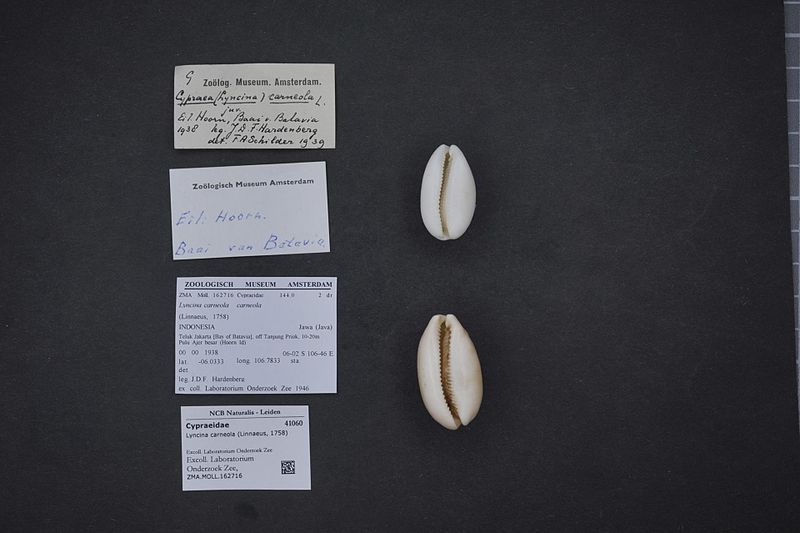 G
Zoölog. Museum. Amsterdam.
Cypraea (Lyncina) carneola L.
juv.
Eil. Hoorn, Baai v. Batavia
1938 leg. J.D.F. Hardenberg
det. F A Schilder 1939
Zoölogisch Museum Amsterdam
Eil: Hoorn.
Baai van Batavia.
ZOOLOGISCH MUSEUM AMSTERDAM
ZMA Moll. 162716 Cypraeidae 144.0 2 dr
Lyncina carneola carneola
(Linnaeus, 1758)
INDONESIA Jawa (Java)
Teluk Jakarta [Bay of Batavia], off Tanjung Priok, 10-20m
Pulu Ajer besar (Hoorn Id)
00 00 1938 06-02 S 106-46 E
lat. -06.0333 long. 106.7833 sta
det
leg J.D.F. Hardenberg
ex coll. Laboratorium Onderzoek Zee 1946
NCB Naturalis - Leiden
Cypraeidae 41060
Lyncina carneola (Linnaeus, 1758)
Excoll. Laboratorium Onderzoek Zee
Excoll. Laboratorium
Onderzoek Zee,
ZMA.MOLL.162716